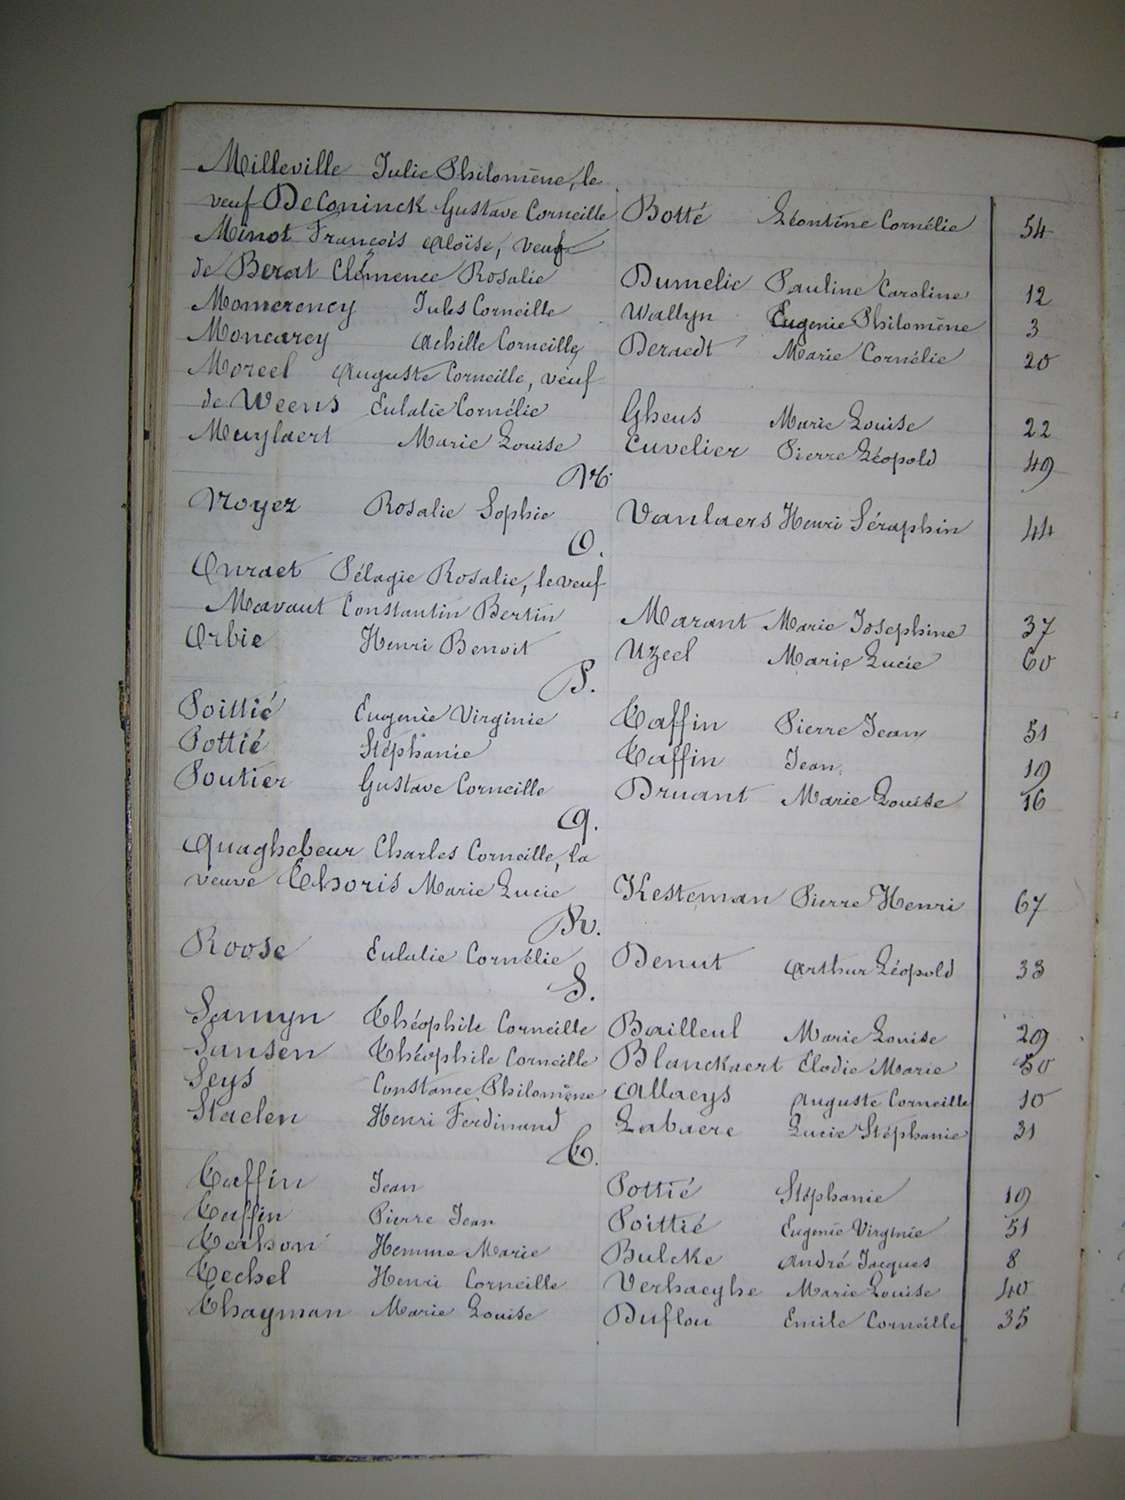 Milleville Julie Philomène, le
veuf DeConinck Gustave Corneille Botté Léontine Cornélie 54
Minot François Aloïse, veuf
de Berat Clémence Rosalie Dumelie Pauline Caroline 12
Momerency Jules Corneille Wallyn Eugenie Philomène 3
Moncarey Achille Corneille Deraedt Marie Cornélie 20
Moreel Auguste Corneille, veuf
de Weens Eulalie Cornélie Gheus Marie Louise 22
Muylaert Marie Louise Cuvelier Pierre Léopold 49
N.
Noyez Rosalie Sophie Vanlaers Henri Séraphin 44
O.
Onraet Pélagie Rosalie, le veuf
Mavaut Constantin Bertin Marant Marie Josephine 37
Orbie Henri Benoit Uzeel Marie Lucie 60
P.
Poittié Eugenie Virginie Taffin Pierre Jean 51
Pottié Stéphanie Taffin Jean 19
Poutier Gustave Corneille Druant Marie Louise 16
Q.
Quaghebeur Charles Corneille, la
veuve Thoris Marie Lucie Kesteman Pierre Henri 67
R.
Roose Eulalie Cornélie Denut Arthur Léopold 33
S.
Samyn Théophile Corneille Bailleul Marie Louise 29
Sansen Théophile Corneille Blanckaert Élodie Marie 50
Seys Constance Philomène Allaeys Auguste Corneille 10
Staelen Henri Ferdinand Labaere Lucie Stéphanie 31
T.
Taffin Jean Pottié Stéphanie 19
Taffin Pierre Jean Poittié Eugenie Virginie 51
Hemme Marie Bulcke André Jacques 8
Techel Henri Corneille Verhaeghe Marie Louise 40
Thayman Marie Louise Duflou Emile Corneille 35